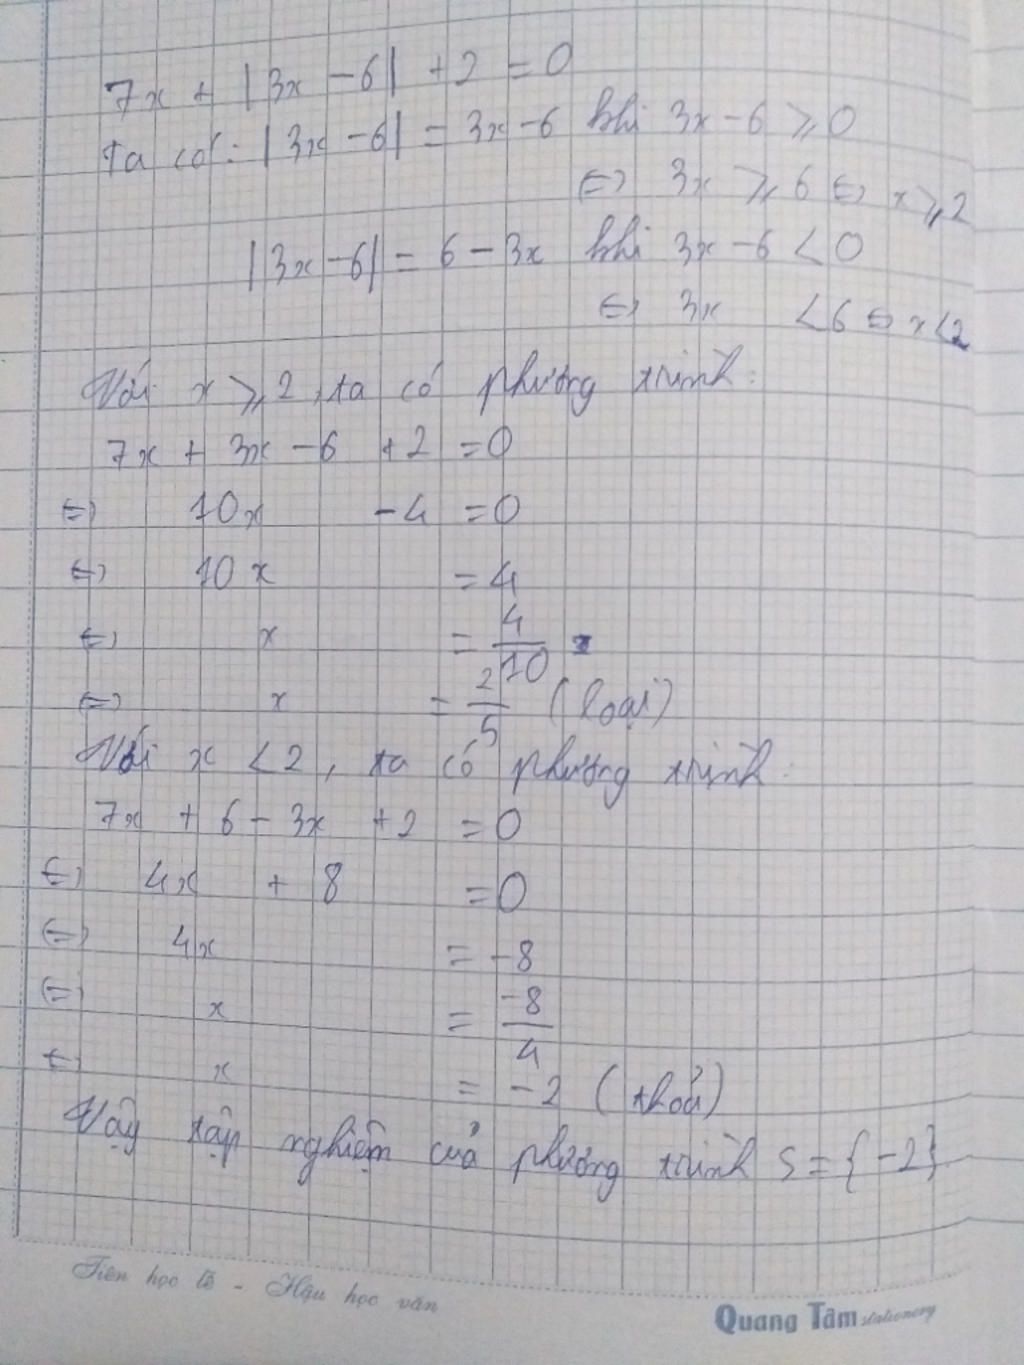 7x + |3x - 6| + 2 = 0
Ta có: |3x - 6| = 3x - 6 khi 3x - 6 ⩾ 0
⇔ 3x ⩾ 6 ⇔ x ⩾ 2
|3x - 6| = 6 - 3x khi 3x - 6 < 0
⇔ 3x < 6 ⇔ x < 2
Với x ⩾ 2, ta có phương trình:
7x + 3x - 6 + 2 = 0
⇔ 10x - 4 = 0
⇔ 10x = 4
⇔ x = 4/10
⇔ x = 2/5 (loại)
Với x < 2, ta có phương trình:
7x + 6 - 3x + 2 = 0
⇔ 4x + 8 = 0
⇔ 4x = -8
⇔ x = -8/4
⇔ x = -2 (thoả)
Vậy tập nghiệm của phương trình S = {-2}
Tiên học lễ - Hậu học văn
Quang Tâm stationery